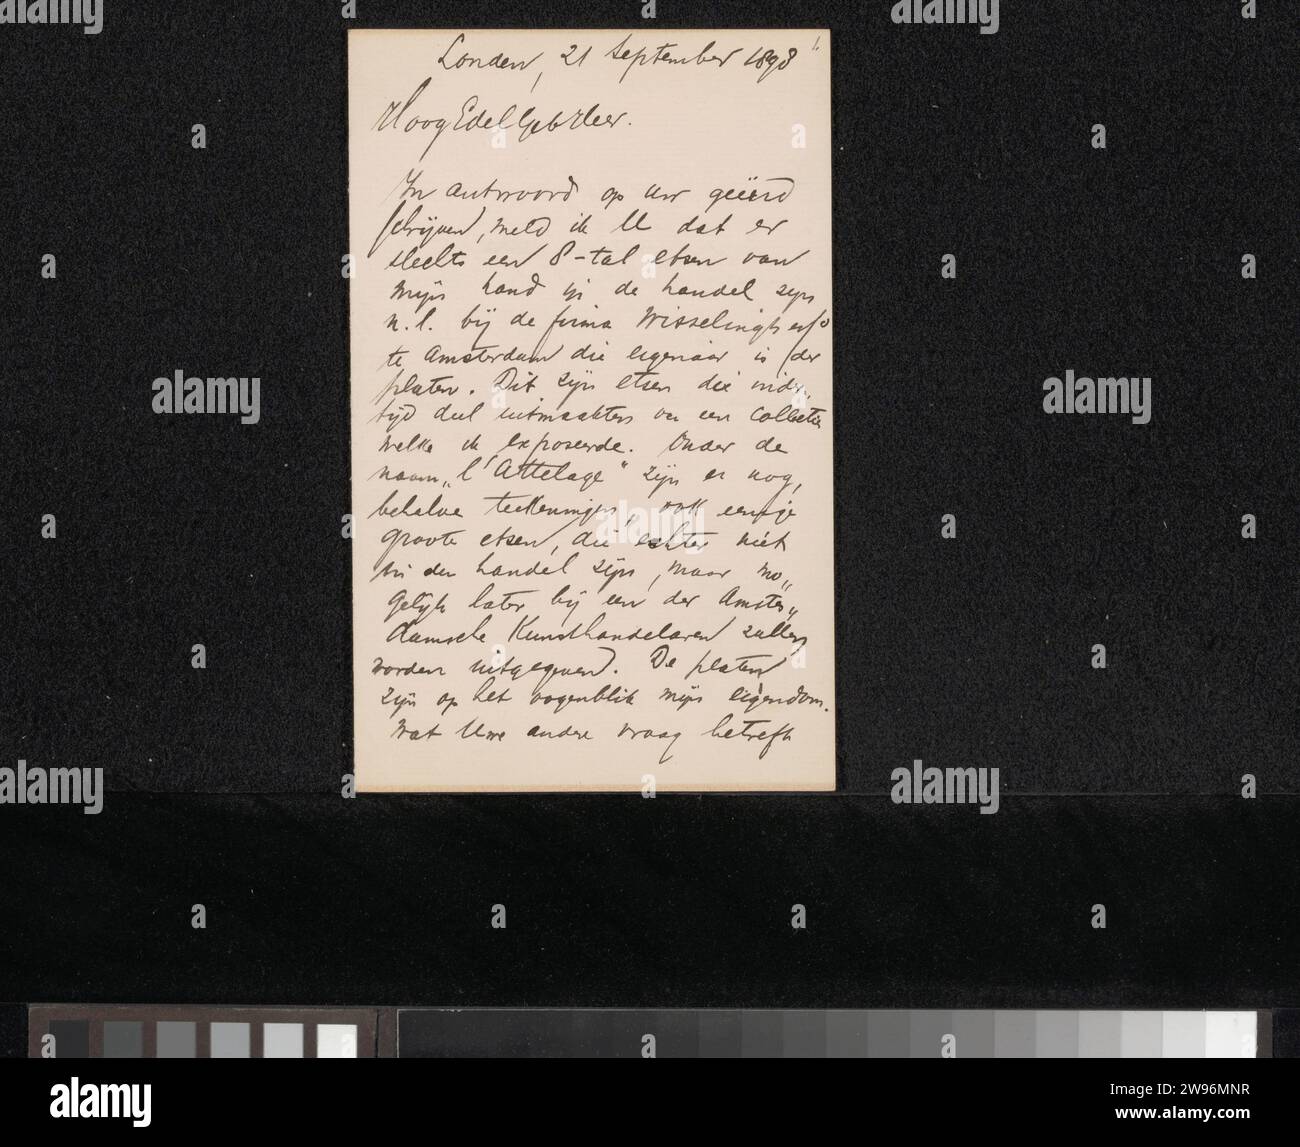 1.
Londen, 21 September 1898
HoogEdelGeb Heer.
In antwoord op Uw geëerd
schrijven, meld ik U dat er
slechts een 8-tal etsen van
mijn hand in de handel zijn
n.l. bij de firma Wisselingh en Co
te Amsterdam die eigenaar is der
platen. Dit zijn etsen die inder„
tijd deel uitmaakten van een collectie
welke ik exposeerde. Onder de
naam „l'Attelage" zijn er nog,
behalve teekeningen, ook eenige
groote etsen, die echter niet
in den handel zijn, maar mo„
gelijk later bij een der Amster„
damsche Kunsthandelaren zullen
worden uitgegeven. De platen
zijn op het oogenblik mijn eigendom.
Wat Uwe andere vraag betreft
alamy
a
alamy
Image ID: 2W96MNR
www.alamy.com